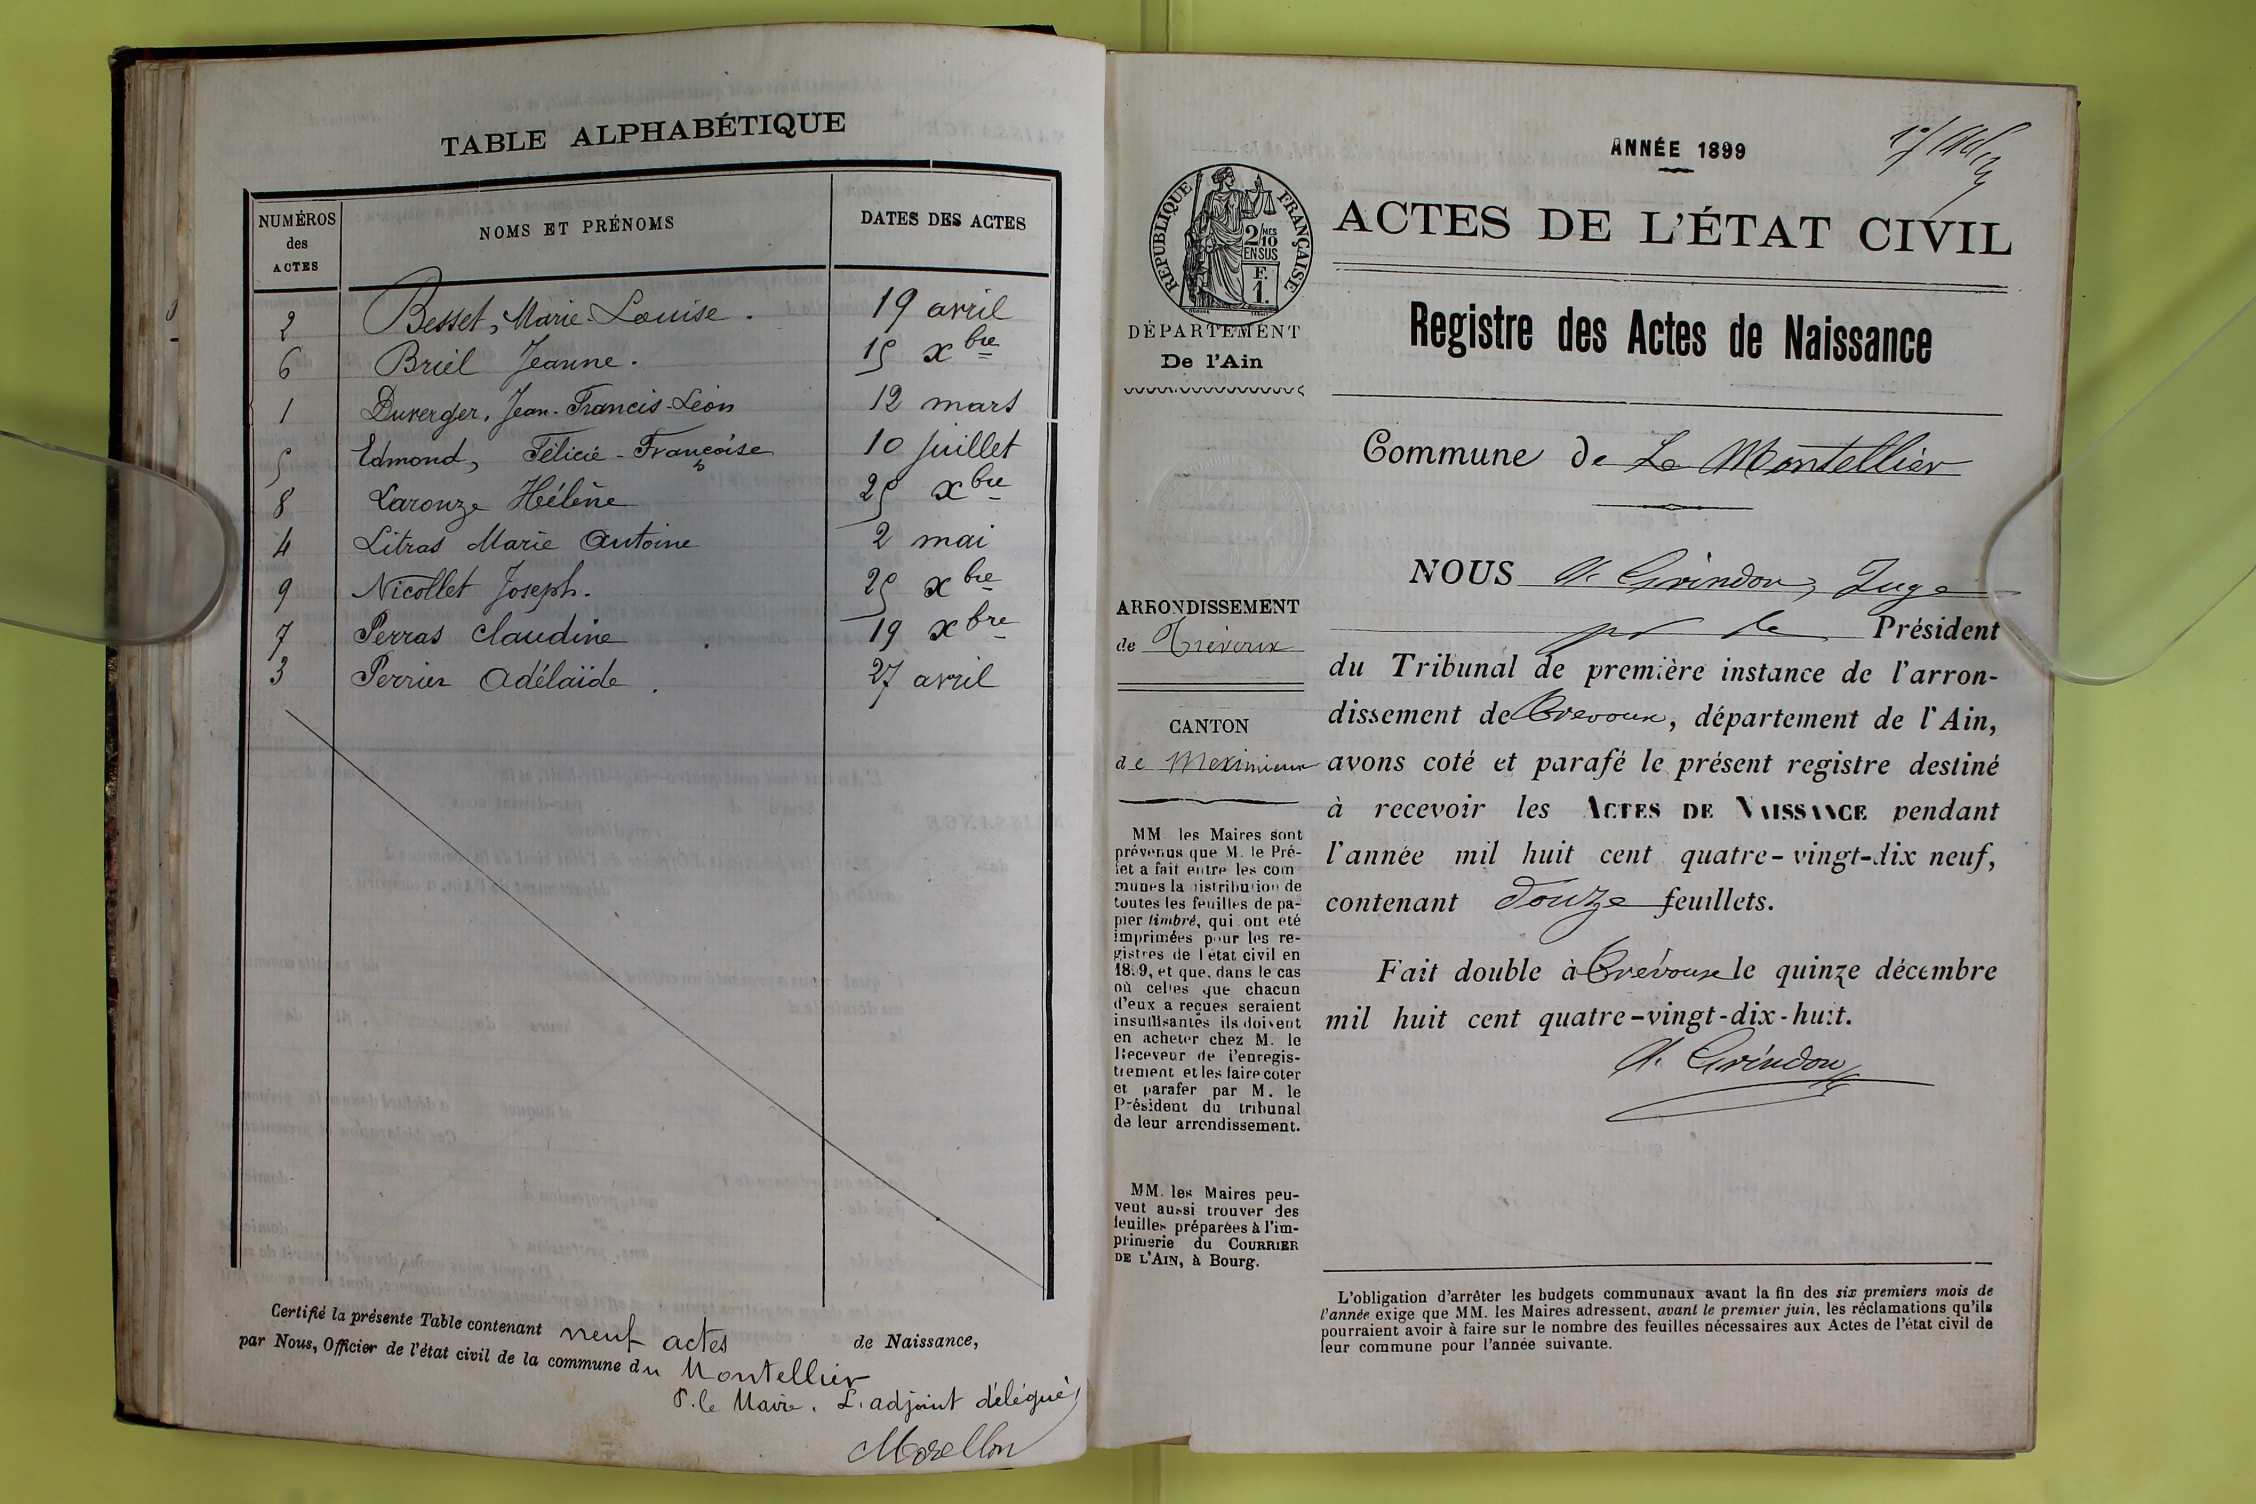 TABLE ALPHABÉTIQUE
NUMÉROS des ACTES
NOMS ET PRÉNOMS
DATES DES ACTES
2 Besset, Marie-Louise. 19 avril
6 Briel Jeanne. 15 xbre
1 Duverger, Jean-Francis-Léon 12 mars
5 Edmond, Félicie-Françoise 10 juillet
8 Larouze Hélène 25 xbre
4 Litras Marie Antoine 2 mai
9 Nicollet Joseph. 25 xbre
7 Perras Claudine 19 xbre
3 Perrier Adélaïde. 27 avril
Certifié la présente Table contenant neuf actes de Naissance,
par Nous, Officier de l'état civil de la commune du Montellier
P. le Maire. L'adjoint délégué,
Morellon
ANNÉE 1899
RÉPUBLIQUE FRANÇAISE
2/10 MES
EN SUS
F.
1.
DÉPARTEMENT
De l'Ain
ARRONDISSEMENT
de Trévoux
CANTON
de Meximieux
MM. les Maires sont
prévenus que M. le Pré-
fet a fait entre les com
munes la distribution de
toutes les feuilles de pa-
pier timbré, qui ont été
imprimées pour les re-
gistres de l'état civil en
1899, et que, dans le cas
où celles que chacun
d'eux a reçues seraient
insuffisantes ils doivent
en acheter chez M. le
Receveur de l'enregis-
trement et les faire coter
et parafer par M. le
Président du tribunal
de leur arrondissement.
MM. les Maires peu-
vent aussi trouver des
feuilles préparées à l'im-
primerie du COURRIER
DE L'AIN, à Bourg.
ACTES DE L'ÉTAT CIVIL
Registre des Actes de Naissance
Commune de Le Montellier
NOUS A. Grindon, Juge
pr le Président
du Tribunal de première instance de l'arron-
dissement de Trevoux, département de l'Ain,
avons coté et parafé le présent registre destiné
à recevoir les ACTES DE NAISSANCE pendant
l'année mil huit cent quatre-vingt-dix neuf,
contenant douze feuillets.
Fait double à Trévoux le quinze décembre
mil huit cent quatre-vingt-dix-huit.
A. Grindon
L'obligation d'arrêter les budgets communaux avant la fin des six premiers mois de
l'année exige que MM. les Maires adressent, avant le premier juin, les réclamations qu'ils
pourraient avoir à faire sur le nombre des feuilles nécessaires aux Actes de l'état civil de
leur commune pour l'année suivante.